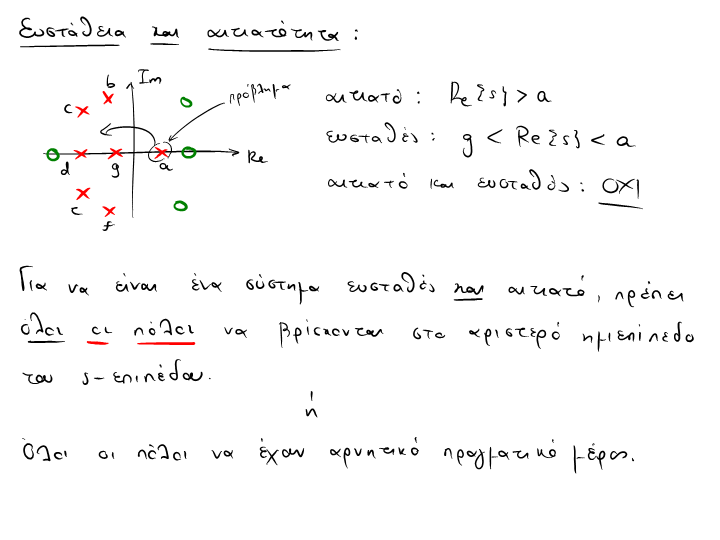 Ευστάθεια και αιτιατότητα :
b Im
c
πρόβλημα
Re
d g a
c
f
αιτιατό : Re{s} > a
ευσταθές : g < Re{s} < a
αιτιατό και ευσταθές : ΟΧΙ
Για να είναι ένα σύστημα ευσταθές και αιτιατό, πρέπει
όλοι οι πόλοι να βρίσκονται στο αριστερό ημιεπίπεδο
του s-επιπέδου.
ή
Όλοι οι πόλοι να έχουν αρνητικό πραγματικό μέρος.